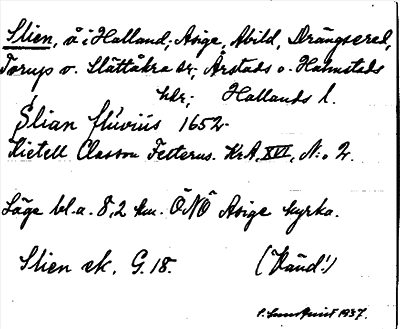 Slien, å i Halland; Asige, Abild, Drängsered,
Torup o. Slättåkra sr, Årstads o. Halmstads
hdr; Hallands l.
Slian flúviús 1652.
Kietell Classon Felterus. KrA, XVI, N:o 2.
Läge bl.a. 8,2 km. ÖNÖ Asige kyrka.
Slien ek. G. 18. (Känd!)
1937.